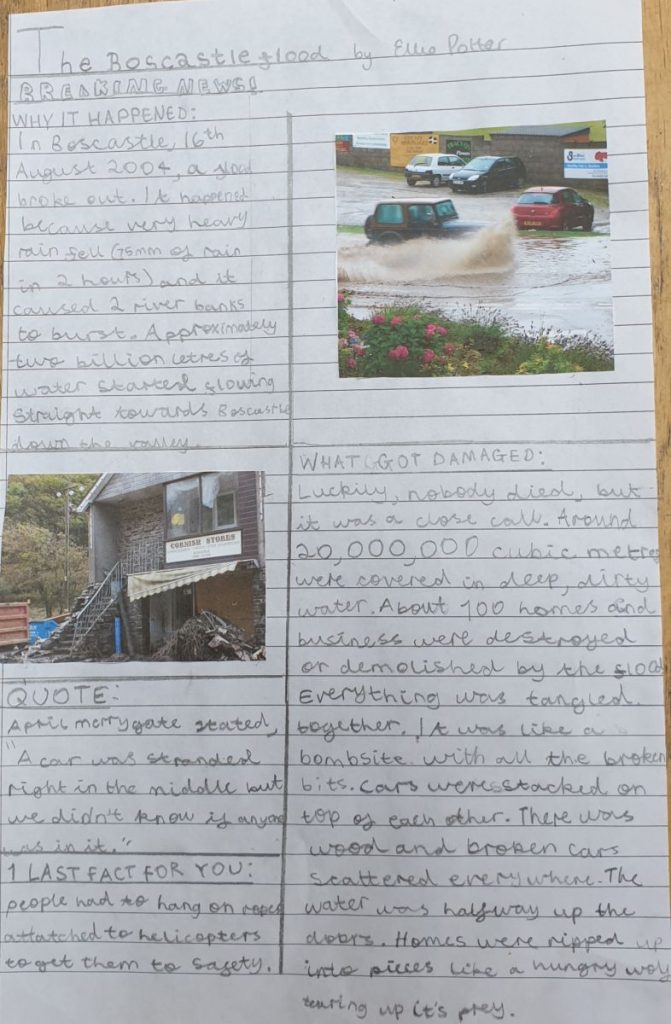 The Boscastle flood by Ellie Potter
BREAKING NEWS!
WHY IT HAPPENED:
In Boscastle, 16th
August 2004, a flood
broke out. It happened
because very heavy
rain fell (75mm of rain
in 2 hours) and it
caused 2 river banks
to burst. Approximately
two billion letres of
water started flowing
straight towards Boscastle
down the valley.
CORNISH STORES
QUOTE:
April merrygate stated,
"A car was stranded
right in the middle but
we didn't know if anyone
was in it."
1 LAST FACT FOR YOU:
people had to hang on ropes
attatched to helicopters
to get them to safety.
WHAT GOT DAMAGED:
Luckily, nobody died, but
it was a close call. Around
20,000,000 cubic metres
were covered in deep, dirty
water. About 100 homes and
business were destroyed
or demolished by the flood
Everything was tangled
together. It was like a
bombsite with all the broken
bits. Cars were stacked on
top of each other. There was
wood and broken cars
scattered everywhere. The
water was halfway up the
doors. Homes were ripped up
into pieces like a hungry wolf
tearing up it's prey.